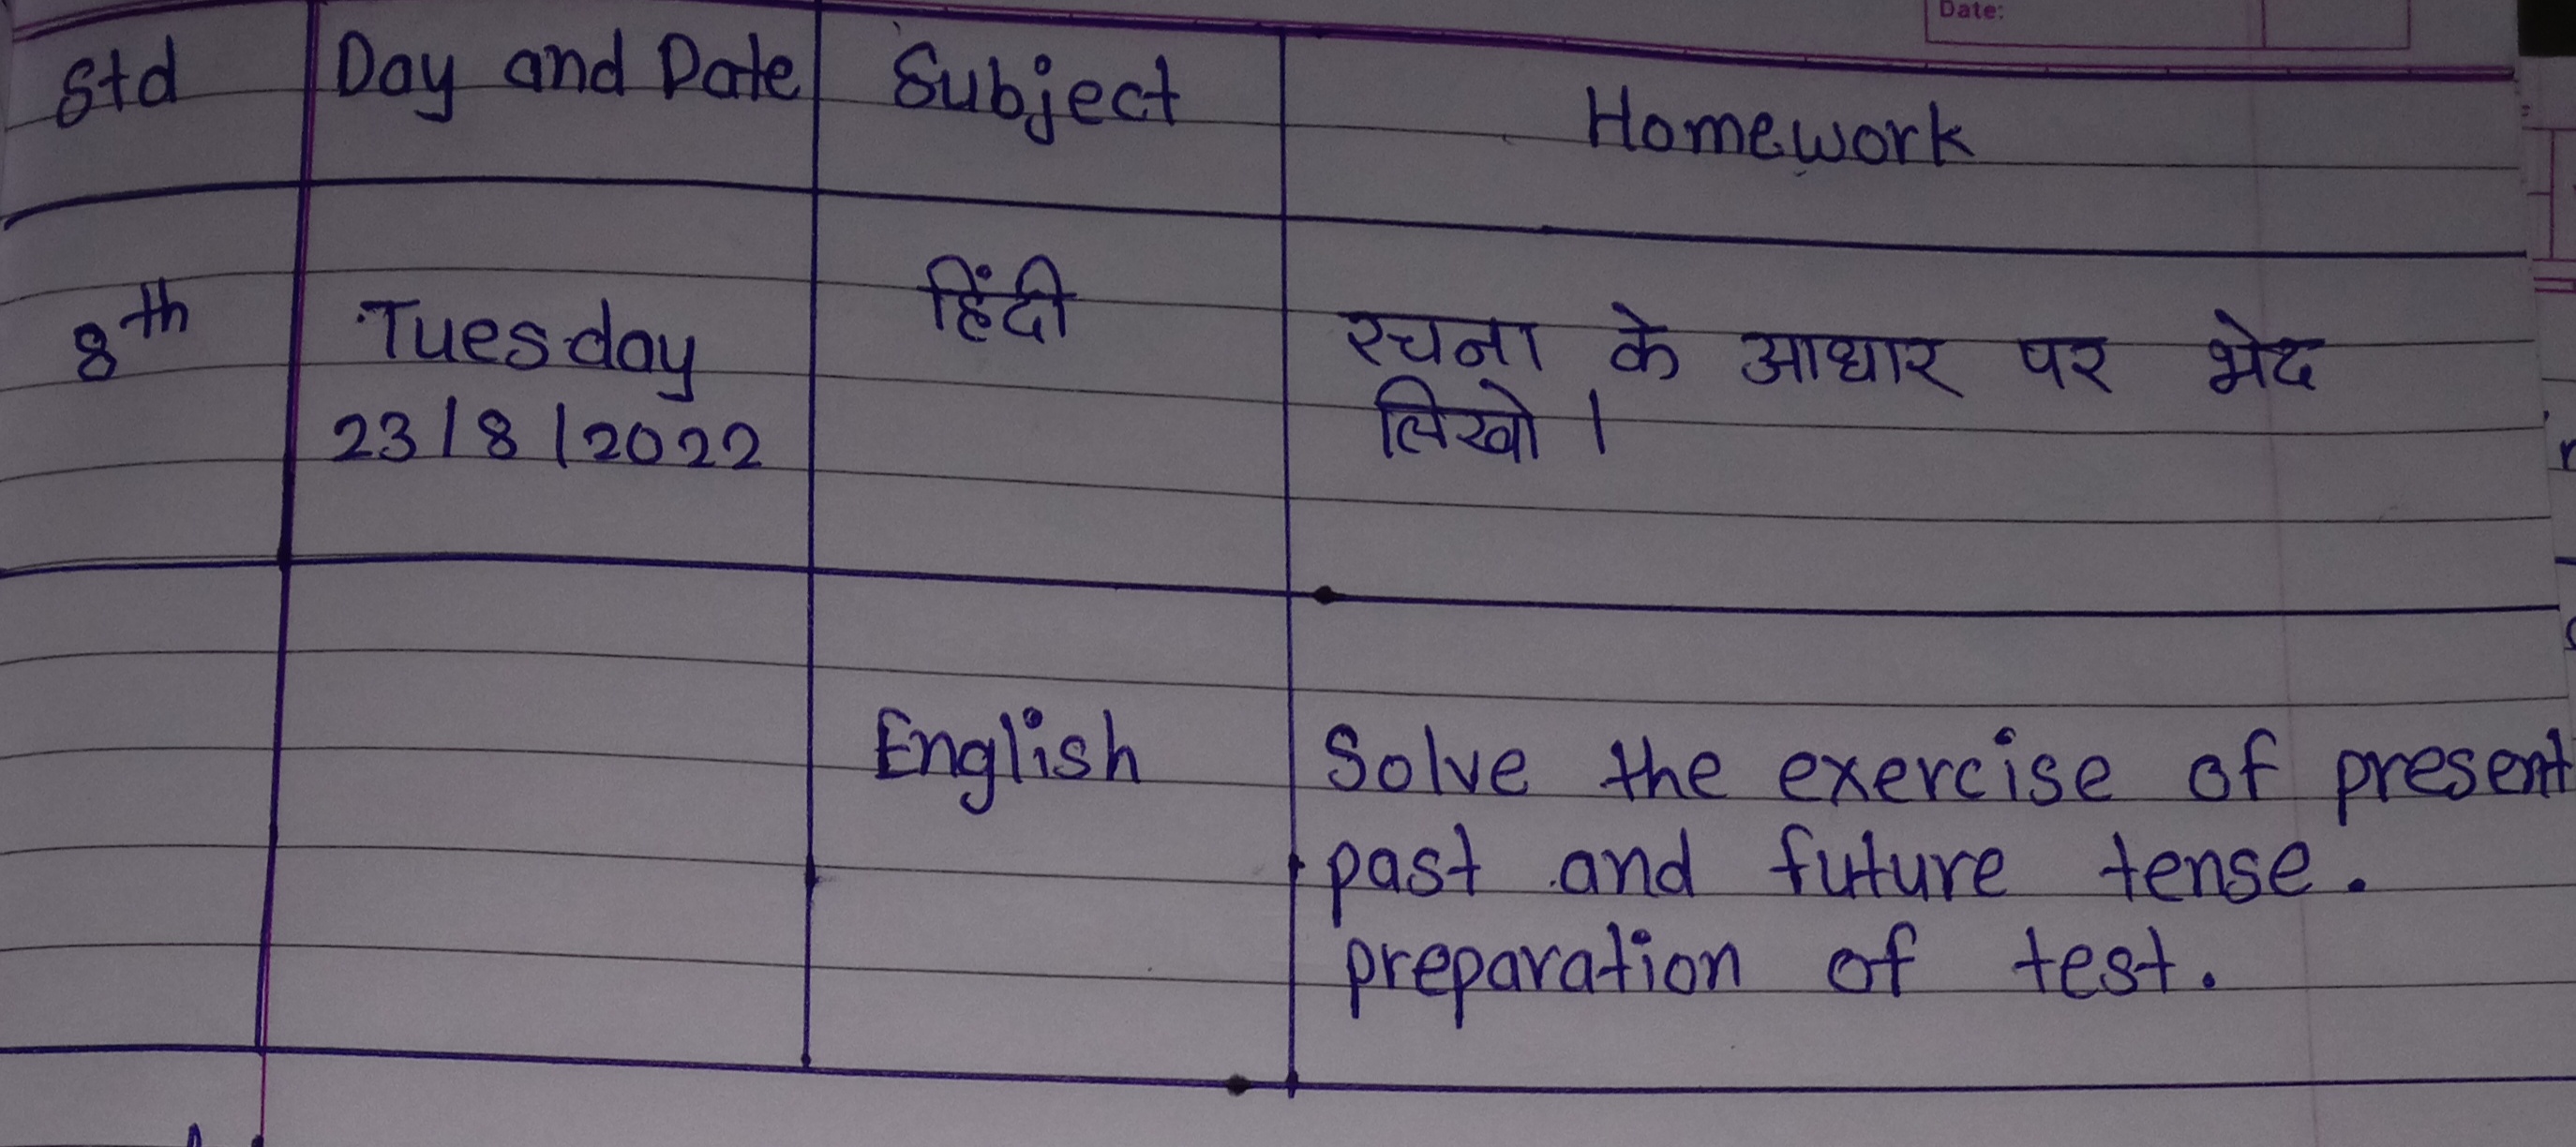 Date:
Std Day and Date Subject Homework
8th Tuesday हिंदी रचना के आधार पर भेद
23/8/2022 लिखो।
English Solve the exercise of present
past and future tense.
preparation of test.